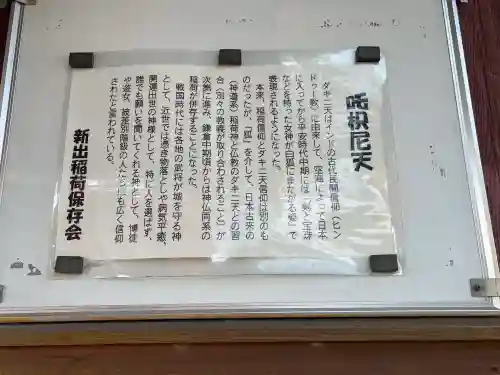 吒枳尼天
ダキニ天はインドの古代民間信仰(ヒン
ドゥー教)に由来して、空海によって日本
に入ってから平安時代中期には「剣と宝珠
などを持った女神が白狐にまたがる姿」で
表現されるようになった。
本来、稲荷信仰とダキニ天信仰は別のも
のだったが、「狐」を介して、日本古来の
(神道系)稲荷神と仏教のダキニ天との習
合(別々の教義が取り合わされること)が
次第に進み、鎌倉中期頃からは神仏同系の
稲荷が併存することになった。
戦国時代には各地の武将が城を守る神
として、近世では憑き物落としや病気平癒、
開運出世の神様として、特に人を選ばず、
誰でも願いを聞いてくれる神として、博徒
や遊女、被差別階級の人たちにも広く信仰
されたと言われている。
新出稲荷保存会